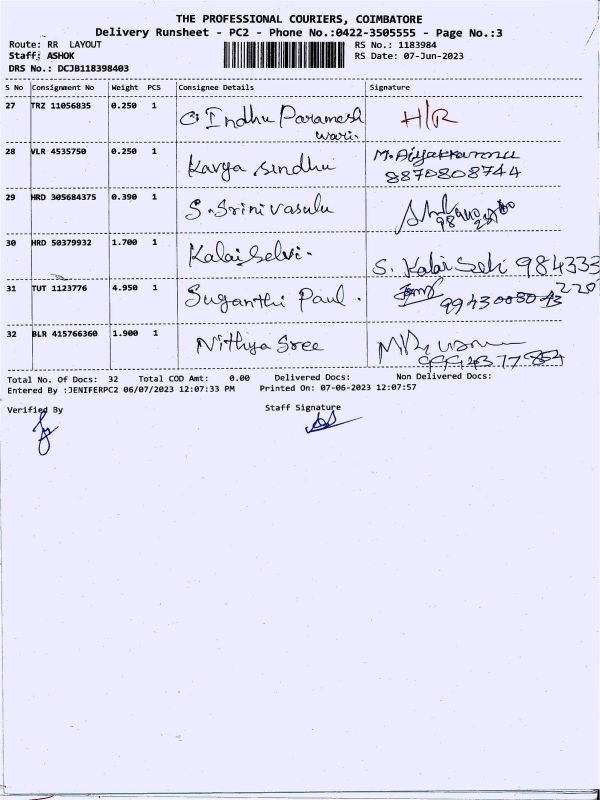 THE PROFESSIONAL COURIERS, COIMBATORE
Delivery Runsheet - PC2 - Phone No.:0422-3505555 - Page No.:3
Route: RR LAYOUT RS No.: 1183984
Staff: ASHOK RS Date: 07-Jun-2023
DRS No.: DCJB118398403
S No Consignment No Weight PCS Consignee Details Signature
27 TRZ 11056835 0.250 1 C. Indhu Paramesh H/R
wari.
28 VLR 4535750 0.250 1 Kavya sindhu M.
8870808744
29 HRD 305684375 0.390 1 S. Srinivasulu
30 HRD 50379932 1.700 1 Kalai Selvi. S. Kalai Selvi 984333
31 TUT 1123776 4.950 1 Suganthi Paul.
32 BLR 415766360 1.900 1 Nithya Sree
Total No. Of Docs: 32 Total COD Amt: 0.00 Delivered Docs: Non Delivered Docs:
Entered By :JENIFERPC2 06/07/2023 12:07:33 PM Printed On: 07-06-2023 12:07:57
Verified By Staff Signature